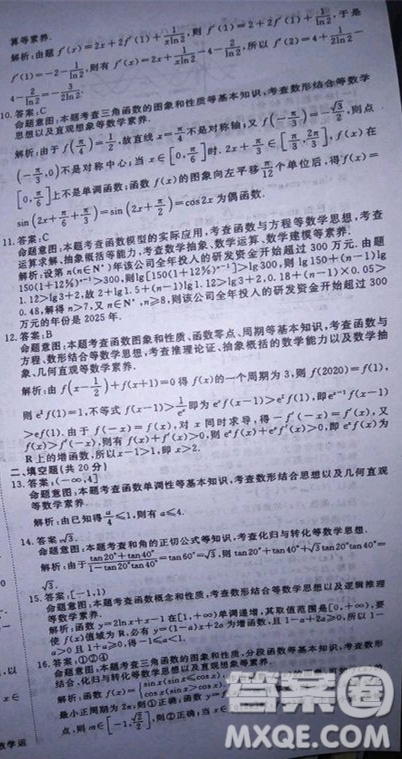 算等素养.
解析:由题 f′(x)=2x+2f′(1)+1/(xln2),则 f′(1)=2+2f′(1)+1/ln2,于是
f′(1)=-2-1/ln2,则有 f′(x)=2x+1/(xln2)-4-2/ln2,所以 f′(2)=4+1/(2ln2)-
4-2/ln2=-3/(2ln2).
10.答案:C
命题意图:本题考查三角函数的图象和性质等基本知识,考查数形结合等数学
思想以及直观想象等数学素养.
解析:由于 f(π/4)=1/2,故直线 x=π/4 不是对称轴;又 f(-π/3)=-√3/2,则点
(-π/3,0)不是对称中心;当 x∈[0,π/6]时,2x+π/3∈[π/3,2π/3],f(x)在
[0,π/6]上不是单调函数;函数 f(x)的图象向左平移π/12个单位后,得f(x)=
sin(2x+π/6+π/3)=sin(2x+π/2)=cos2x为偶函数.
11.答案:C
命题意图:本题考查函数模型的实际应用,考查函数与方程等数学思想,考查
运算求解、抽象概括等能力,考查数学抽象、数学运算、数学建模等素养.
解析:设第 n(n∈N*)年该公司全年投入的研发资金开始超过 300 万元.由题
150(1+12%)ⁿ⁻¹>300,则lg[150(1+12%)ⁿ⁻¹]>lg300,则 lg150+(n-1)lg
1.12>lg3+2,故 2+lg1.5+(n-1)lg1.12>lg3+2,0.18+(n-1)×0.05>
0.48,解得 n>7,又 n∈N*,n≥8,则该公司全年投入的研发资金开始超过 300
万元的年份是 2025 年.
12.答案:B
命题意图:本题考查函数图象和性质、函数零点、周期等基本知识,考查函数与
方程、数形结合等数学思想,考查推理论证、抽象概括的数学能力以及数学抽
象、几何直观等数学素养.
解析:由 f(x-1/2)+f(x+1)=0 得 f(x)的一个周期为 3,则 f(2020)=f(1),
则 e²f(1)=1,不等式 f(x-1)>1/eˣ即为 eˣf(x-1)>e²f(1),即 eˣ⁻¹f(x-1)
>ef(1).由于 f(-x)=f(x),对 x 同时求导,得-f′(-x)=f′(x),又
f(x)>f′(-x),则有 f(x)+f′(x)>0,则 eˣf(x)+eˣf′(x)>0,即 eˣf(x)为
R 上的增函数,所以x-1>1,即 x>2.
二、填空题(共 20 分)
13.答案:(-∞,4]
命题意图:本题考查函数单调性等基本知识,考查数形结合思想以及几何直观
等数学素养.
解析:由已知得a/4≤1,则有 a≤4.
14.答案:√3.
命题意图:本题考查和角的正切公式等知识,考查化归与转化等数学思想.
解析:由于(tan20°+tan40°)/(1-tan20°tan40°)=tan60°=√3,则 tan20°+tan40°+√3tan20°tan40°=
√3.
15.答案:[-1,1)
命题意图:本题考查函数概念和性质,考查数形结合等数学思想以及逻辑推理
等数学素养.
解析:函数 y=2lnx+x-1 在[1,+∞)单调递增,其取值范围是[0,+∞),要
使 f(x)值域为 R,必有 y=(1-a)x+2a 为增函数,且 1-a+2a≥0,所以 1-
a>0 且 1+a≥0,得-1≤a<1.
16.答案:①②④
命题意图:本题考查三角函数的图象和性质、分段函数等基本知识,考查数形
结合、化归与转化等数学思想以及直观想象等素养.
解析:函数 f(x)=
最小正周期为 2π,则①正确;
点,则 m∈[-1,√2/2],则②正确;当 x∈
答案圈
MXQE.COM